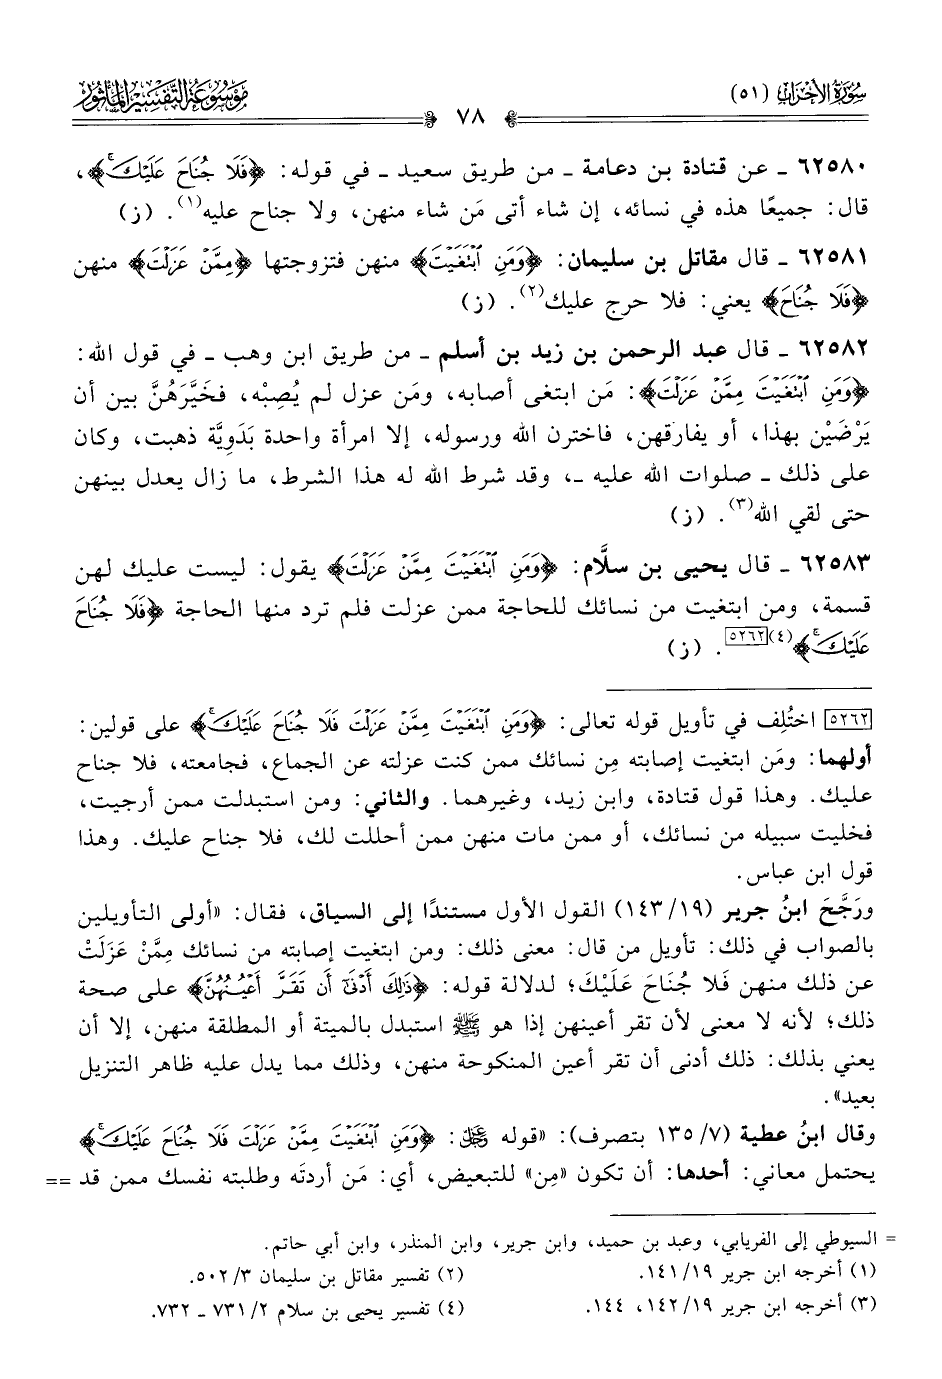 سُورَةُ الأَحْزَابِ (٥١)
٧٨
مَوْسُوعَةُ التَّفْسِيرِ المَأْثُورِ
٦٢٥٨٠ ـ عن قتادة بن دعامة ـ من طريق سعيد ـ في قوله: ﴿فَلَا جُنَاحَ عَلَيْكَۚ﴾،
قال: جميعًا هذه في نسائه، إن شاء أتى مَن شاء منهن، ولا جناح عليه(١). (ز)
٦٢٥٨١ ـ قال مقاتل بن سليمان: ﴿وَمَنِ ٱبْتَغَيْتَ﴾ منهن فتزوجتها ﴿مِمَّنْ عَزَلْتَ﴾ منهن
﴿فَلَا جُنَاحَ﴾ يعني: فلا حرج عليك(٢). (ز)
٦٢٥٨٢ ـ قال عبد الرحمن بن زيد بن أسلم ـ من طريق ابن وهب ـ في قول الله:
﴿وَمَنِ ٱبْتَغَيْتَ مِمَّنْ عَزَلْتَ﴾: مَن ابتغى أصابه، ومَن عزل لم يُصِبْه، فخَيَّرَهُنَّ بين أن
يَرْضَيْن بهذا، أو يفارقهن، فاخترن الله ورسوله، إلا امرأة واحدة بَدَوِيَّة ذهبت، وكان
على ذلك ـ صلوات الله عليه ـ، وقد شرط الله له هذا الشرط، ما زال يعدل بينهن
حتى لقي الله(٣). (ز)
٦٢٥٨٣ ـ قال يحيى بن سلَّام: ﴿وَمَنِ ٱبْتَغَيْتَ مِمَّنْ عَزَلْتَ﴾ يقول: ليست عليك لهن
قسمة، ومن ابتغيت من نسائك للحاجة ممن عزلت فلم ترد منها الحاجة ﴿فَلَا جُنَاحَ
عَلَيْكَۚ﴾(٤)[٥٢٦٢]. (ز)
[٥٢٦٢] اختُلِف في تأويل قوله تعالى: ﴿وَمَنِ ٱبْتَغَيْتَ مِمَّنْ عَزَلْتَ فَلَا جُنَاحَ عَلَيْكَۚ﴾ على قولين:
أولهما: ومَن ابتغيت إصابته مِن نسائك ممن كنت عزلته عن الجماع، فجامعته، فلا جناح
عليك. وهذا قول قتادة، وابن زيد، وغيرهما. والثاني: ومن استبدلت ممن أرجيت،
فخليت سبيله من نسائك، أو ممن مات منهن ممن أحللت لك، فلا جناح عليك. وهذا
قول ابن عباس.
ورَجَّحَ ابنُ جرير (١٤٣/١٩) القول الأول مستندًا إلى السياق، فقال: «أولى التأويلين
بالصواب في ذلك: تأويل من قال: معنى ذلك: ومن ابتغيت إصابته من نسائك مِمَّنْ عَزَلَتْ
عن ذلك منهن فَلا جُنَاحَ عَلَيْكَ؛ لدلالة قوله: ﴿ذَٰلِكَ أَدْنَىٰٓ أَن تَقَرَّ أَعْيُنُهُنَّ﴾ على صحة
ذلك؛ لأنه لا معنى لأن تقر أعينهن إذا هو ﷺ استبدل بالميتة أو المطلقة منهن، إلا أن
يعني بذلك: ذلك أدنى أن تقر أعين المنكوحة منهن، وذلك مما يدل عليه ظاهر التنزيل
بعيد».
وقال ابنُ عطية (٧/ ١٣٥ بتصرف): «قوله ﷻ: ﴿وَمَنِ ٱبْتَغَيْتَ مِمَّنْ عَزَلْتَ فَلَا جُنَاحَ عَلَيْكَۚ﴾
يحتمل معاني: أحدها: أن تكون «مِن» للتبعيض، أي: مَن أردتَه وطلبته نفسك ممن قد ==
= السيوطي إلى الفريابي، وعبد بن حميد، وابن جرير، وابن المنذر، وابن أبي حاتم.
(١) أخرجه ابن جرير ١٤١/١٩. (٢) تفسير مقاتل بن سليمان ٣/ ٥٠٢.
(٣) أخرجه ابن جرير ١٤٢/١٩، ١٤٤. (٤) تفسير يحيى بن سلام ٢/ ٧٣١ ـ ٧٣٢.